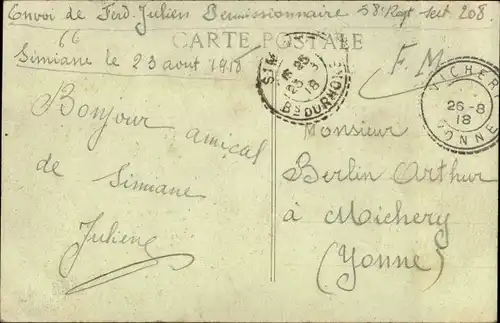 Convoi de Ferd. Julien Permissionnaire 58e Regt Sect 208
66
CARTE POSTALE
Simiane le 23 aout 1918
F. M.
SIM
23
18
Bes DU RHONE
MICHERY
26-8
18
YONNE
Bonjour amical
de Simiane
Julien
Monsieur
Berlin Arthur
à Michery
(Yonne)